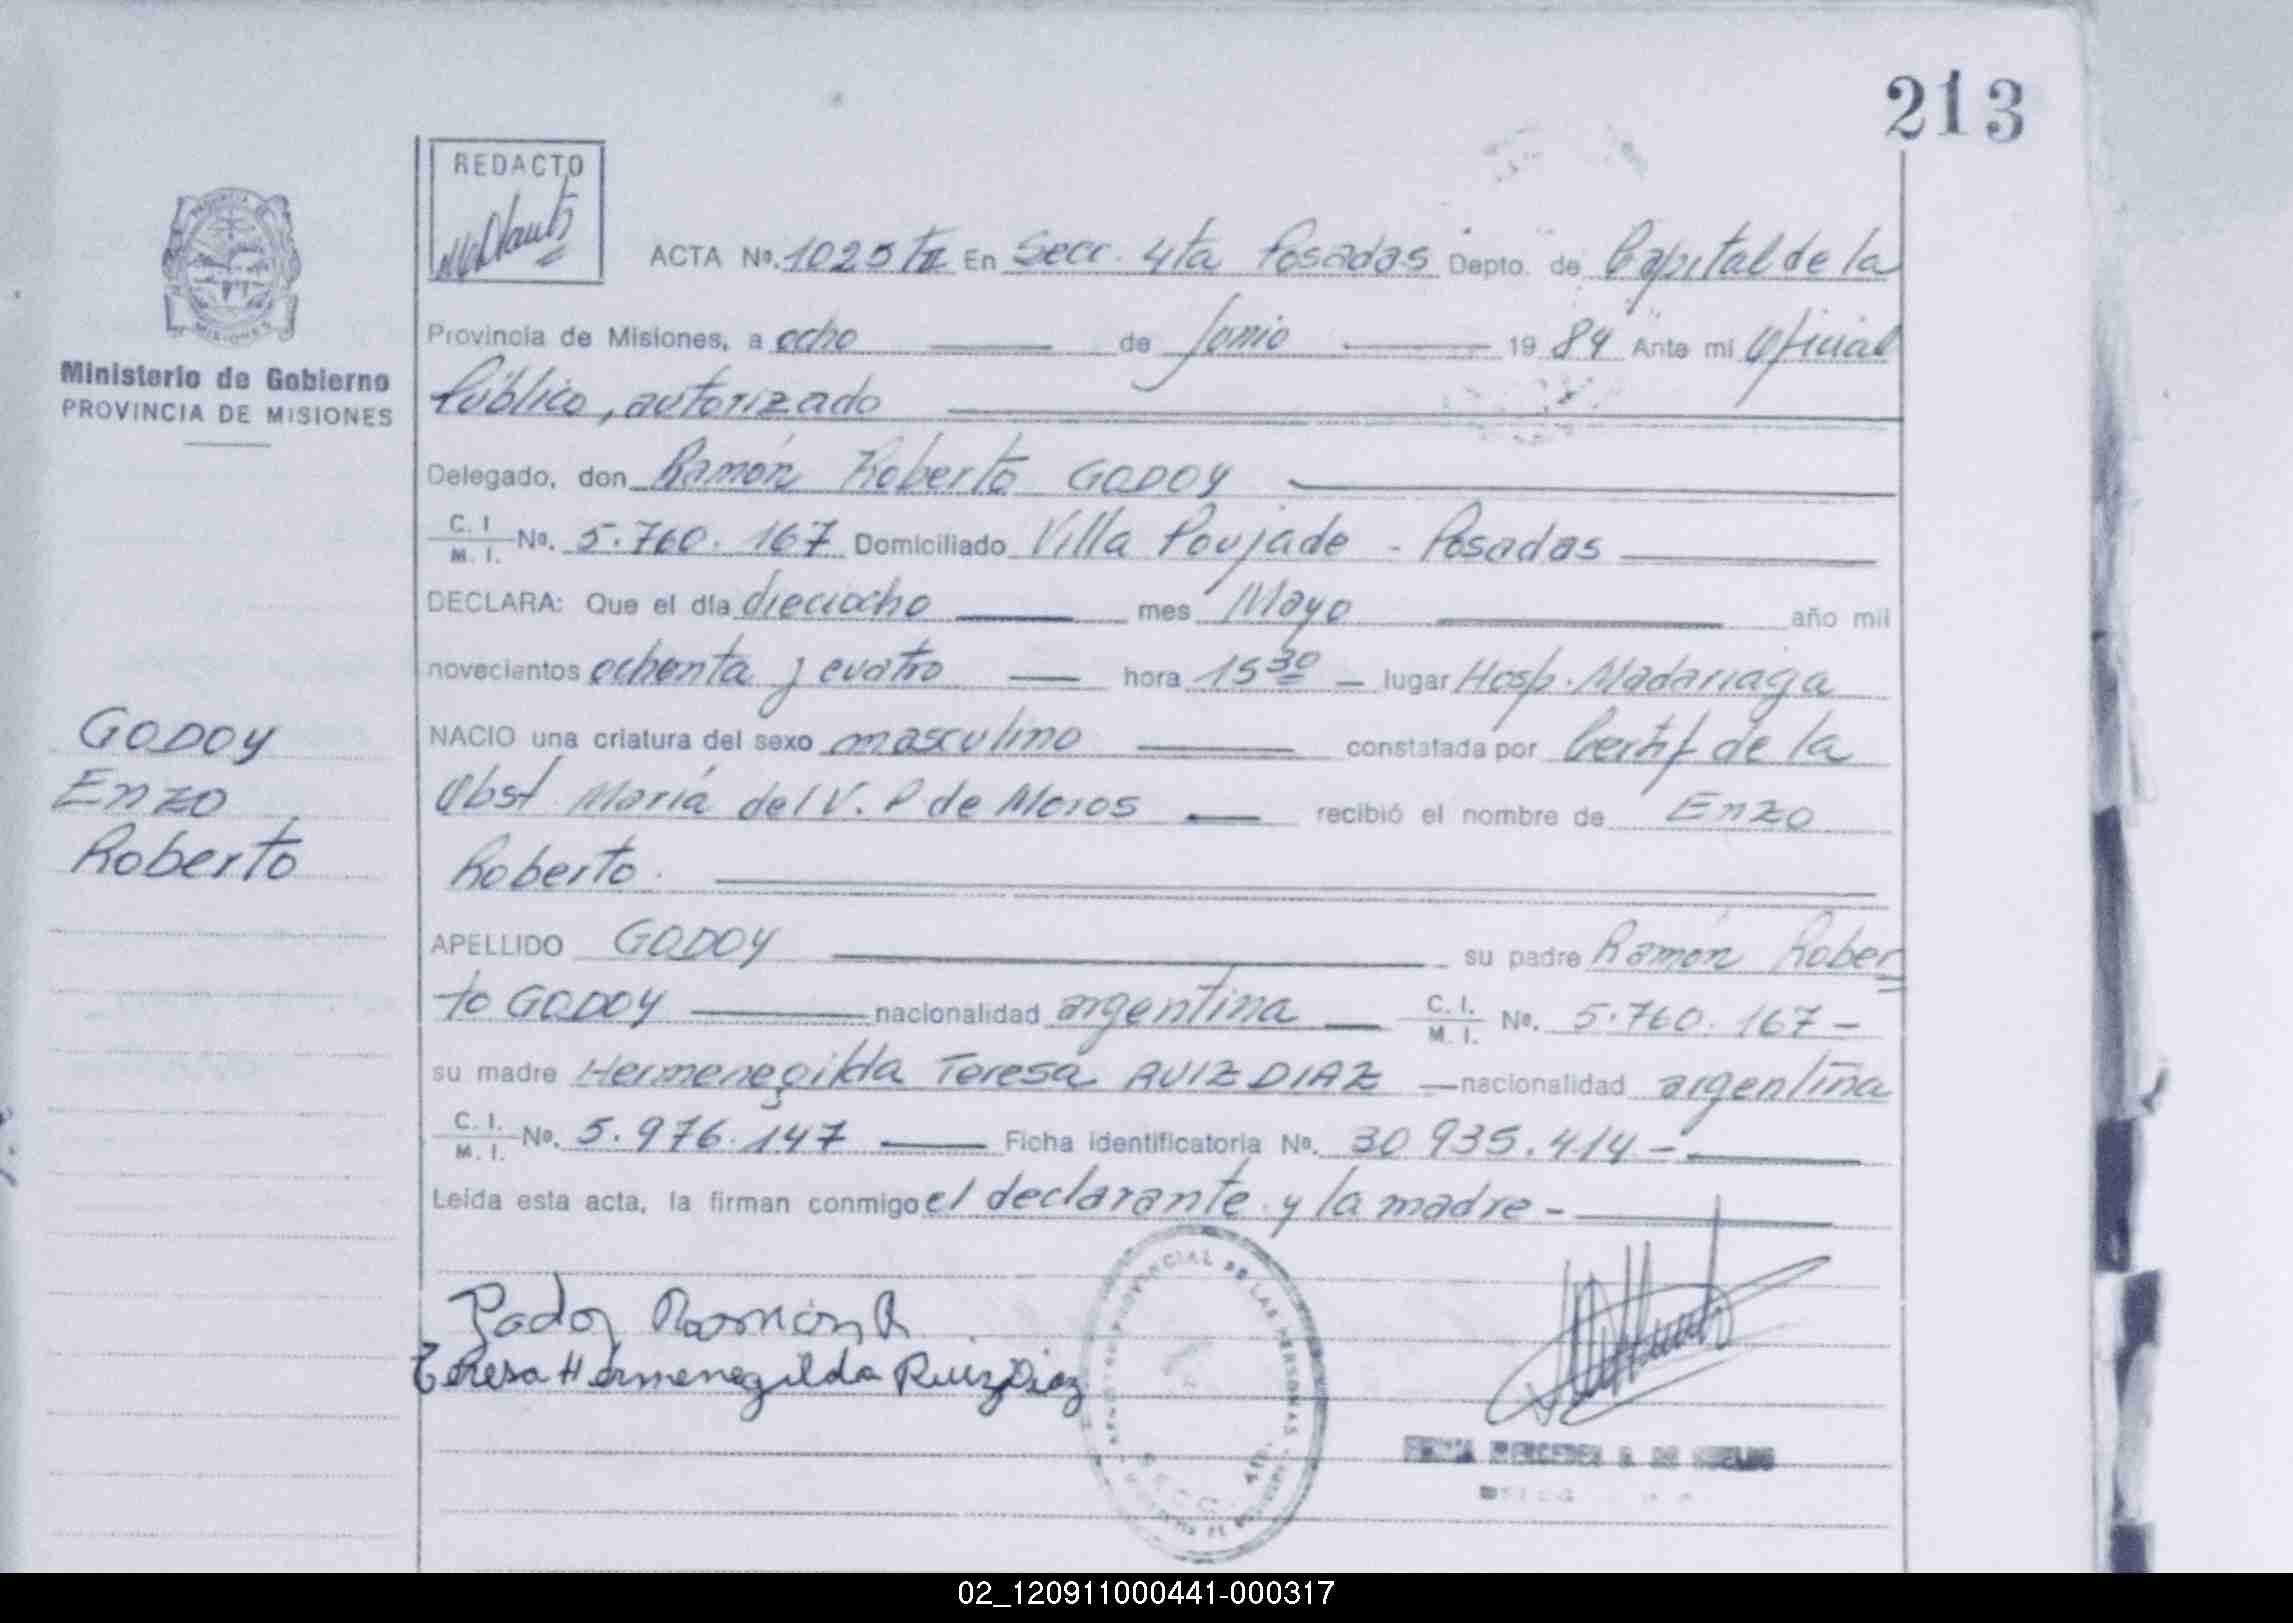 213
REDACTO
ACTA Nº. 1025 En Secc. 4ta Posadas Depto. de Capital de la
Provincia de Misiones, a ocho de Junio 1984 Ante mi Oficial
Público, autorizado
Delegado, don Ramón Roberto GODOY
C. I. / M. I. Nº. 5.760.167 Domiciliado Villa Poujade - Posadas
DECLARA: Que el día dieciocho mes Mayo año mil
novecientos ochenta y cuatro hora 15 30 - lugar Hosp. Madariaga
NACIO una criatura del sexo masculino constatada por Certif de la
Obst María del V. P de Moros recibió el nombre de Enzo
Roberto.
APELLIDO GODOY su padre Ramón Rober
to GODOY nacionalidad argentina C. I. / M. I. Nº. 5.760.167 -
su madre Hermenegilda Teresa RUIZ DIAZ nacionalidad argentina
C. I. / M. I. Nº. 5.976.147 Ficha identificatoria Nº. 30 935.414 -
Leída esta acta, la firman conmigo el declarante y la madre -
Godoy Ramón R
Teresa Hermenegilda Ruiz Diaz
PROVINCIAL DE LAS PERSONAS
SECC. 4ta.
MERCEDES
PROVINCIA DE MISIONES
Ministerio de Gobierno
PROVINCIA DE MISIONES
GODOY
Enzo
Roberto
02_120911000441-000317